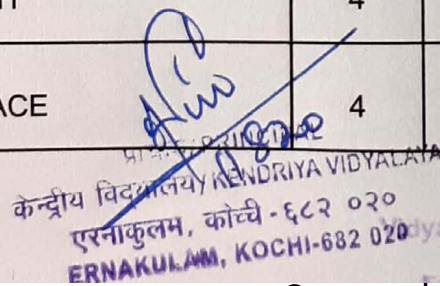 4
ACE 4
PRINCIPAL
केन्द्रीय विद्यालय / KENDRIYA VIDYALAYA
एरनाकुलम, कोच्ची - ६८२ ०२०
ERNAKULAM, KOCHI-682 020